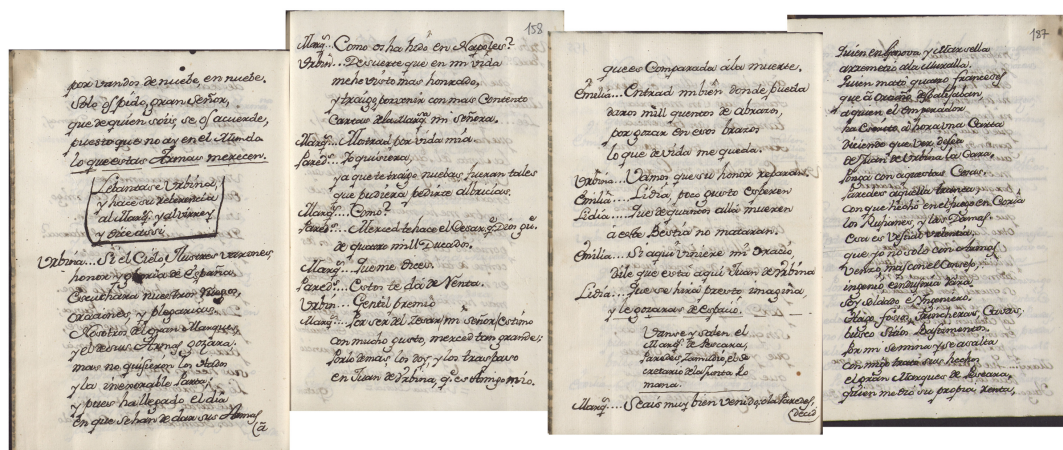 por vandos de nuebe, en nuebe.
Solo os pido, gran Señor,
que de quien sois, se os acuerde,
puesto que no ay en el Mundo
lo que estas Armas merecen.
Lebantase Vrbina,
y hace su reberencia
al Marq.s y al virrey
y dice assi
Vrbina... Si el Cielo, Ilustres varones,
honor y gloria de España,
Escuchara nuestros Ruegos,
oraciones, y plegarias,
Nosotros del gran Marques,
y el de sus Armas gozara.
mas no quisieron los Hados,
y la inexorable Parca,
y pues ha llegado el dia
en que se han de dar sus Armas
(à
158
Marq.s... Como os ha hido en Napoles?
Vrbin... De suerte que en mi vida
me he visto mas honrado,
y traigo por venir con mas Contento
Cartas de la Marq.sa mi Señora.
Marq.s... Mostrad por vida mia.
Pared.s... Yo quisiera,
ya que te traigo nuebas fueran tales
que pudiera pedirte albricias.
Marq.s... Como?
Pared.s... Merced te hace el Cesar,
de quatro mill Ducados.
Marq.s... Que me dices.
Pared.s... Estos te da de Renta.
Vrbin... Gentil premio
Marq.s... Por ser del Cesar mi Señor, estimo
con mucho gusto, merced tan grande;
pero demas los doy, y los traspaso
en Juan de Vrbina, q.e es Amigo mio.
que es Comparada à la muerte.
Emilia... Entrad mi bien donde pueda
daros mill quentos de abrazos,
por gozar en esos brazos
lo que de vida me queda.
Vrbina... Vamos que su honor reparas.
Emilia... Lidia, poco gusto esperen
Lidia... Que de quantos allá mueren
à esta Bestia no mataran.
Emilia... Si aqui viniere mi Oracio,
dile que está aqui Juan de Vrbina
Lidia... Que se hirá presto imagina,
y le gozarás de Espacio.
Vanse y salen el
Marq.s de Pescara,
Paredes, Camilo, el se
cretario de la Junta Ro
mana.
Marq.s... Seais muy bien venidos, ola Paredes,
(decid
187
Quien en Genova y Marsella
arremetió a la Muralla.
Quien mató quatro franceses
que à
à quien el emperador
ha Escrito, à hora una Carta
diciendo que ver desea
de Juan de Vrbina la Cara,
ponga con aquestas Cosas.
Paredes aquella tranca,
con que hechó en el fuego en Coria
los Rufianes, y las Damas.
Esa es Vestial valentia
que yo no solo con Armas
Venzo, mas con el Consejo,
ingenio e industria rara
Soy soldado e Ingeniero,
Hago fosos, Trincheras, Cavas;
busco Sitios Bastimentos,
por mi se mina y se asalta
con migo trata sus hechos
el gran Marques de Pescara,
quien metió su propia Renta,